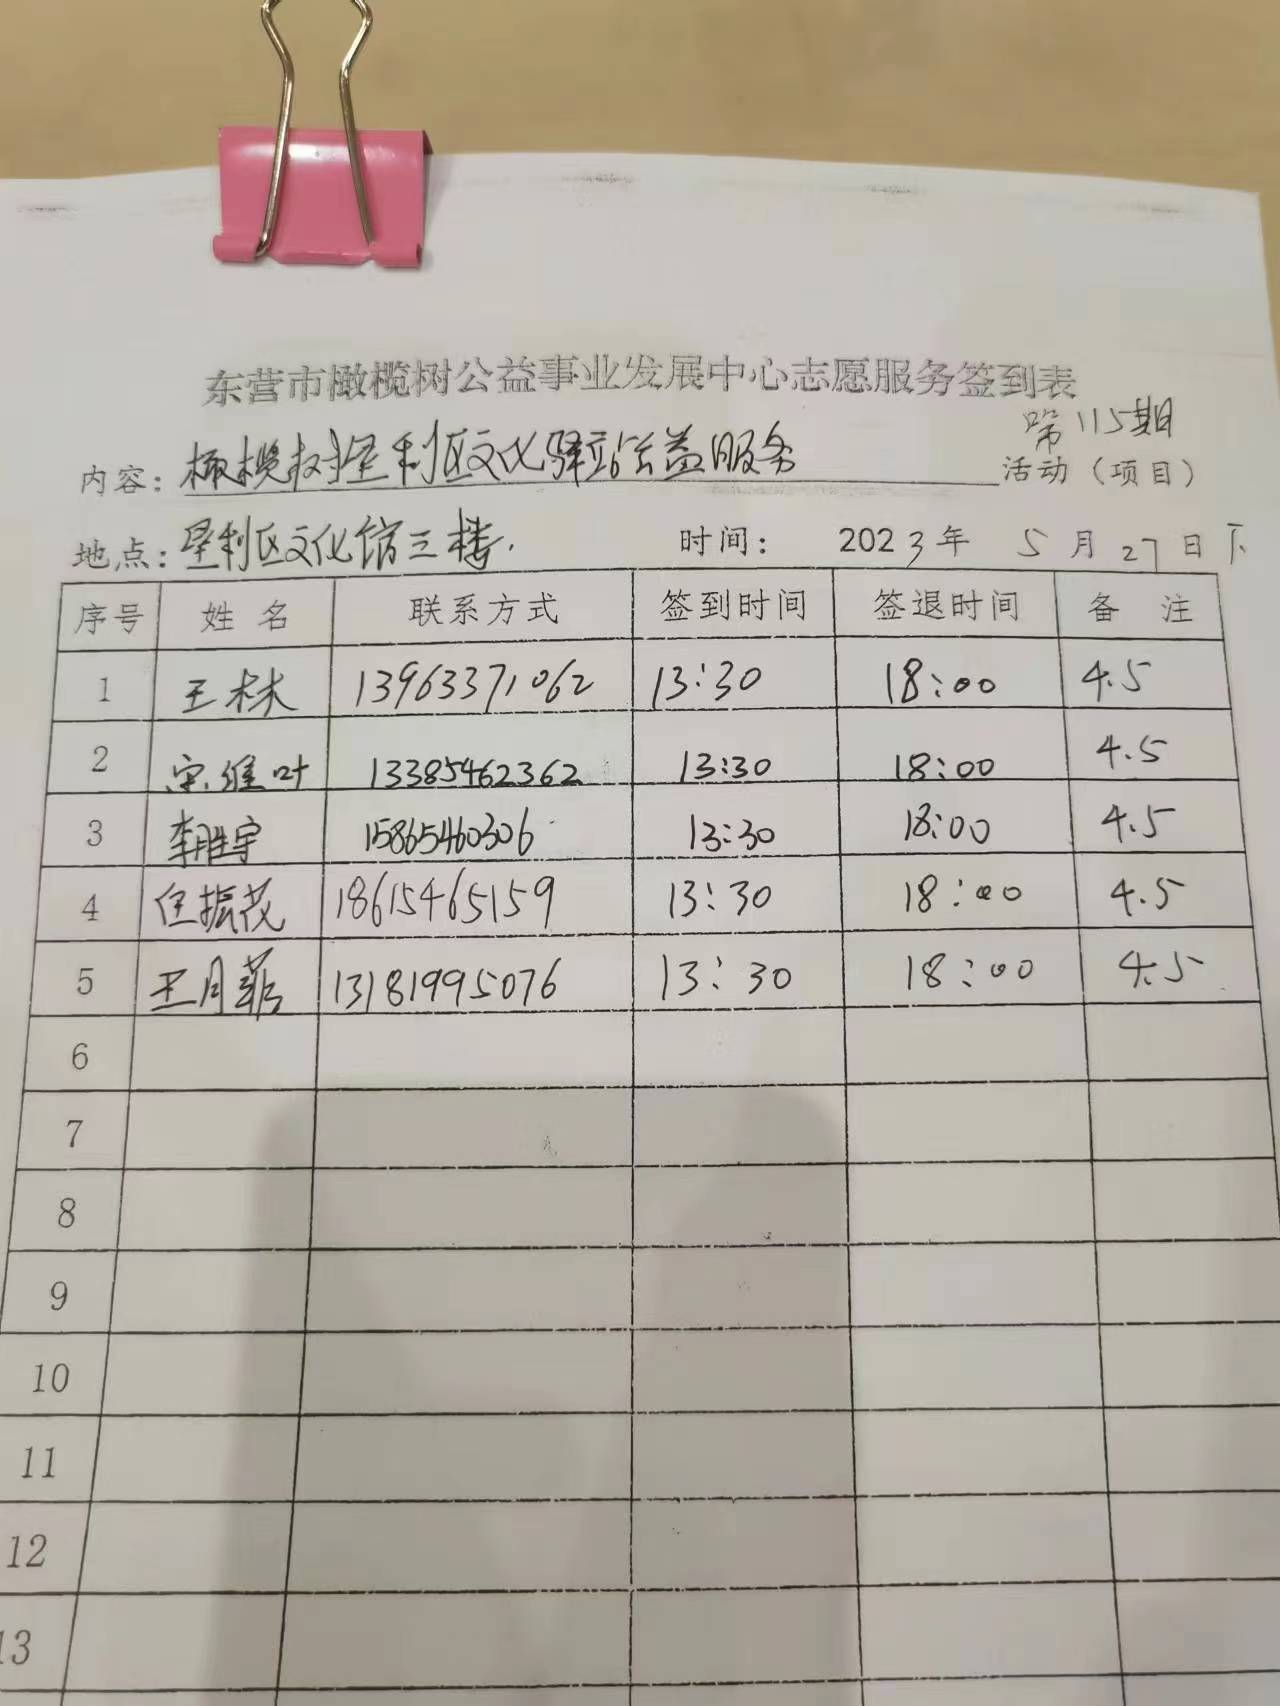 东营市橄榄树公益事业发展中心志愿服务签到表
第115期
内容：橄榄树垦利区文化驿站公益服务 活动（项目）
地点：垦利区文化馆三楼． 时间： 2023年 5月27日下
序号 姓名 联系方式 签到时间 签退时间 备 注
1 王林 13963371062 13:30 18:00 4.5
2 宋维叶 13385462362 13:30 18:00 4.5
3 李胜宇 15865460306 13:30 18:00 4.5
4 任振茂 18615465159 13:30 18:00 4.5
5 王月菲 13181995076 13:30 18:00 4.5
6
7
8
9
10
11
12
13